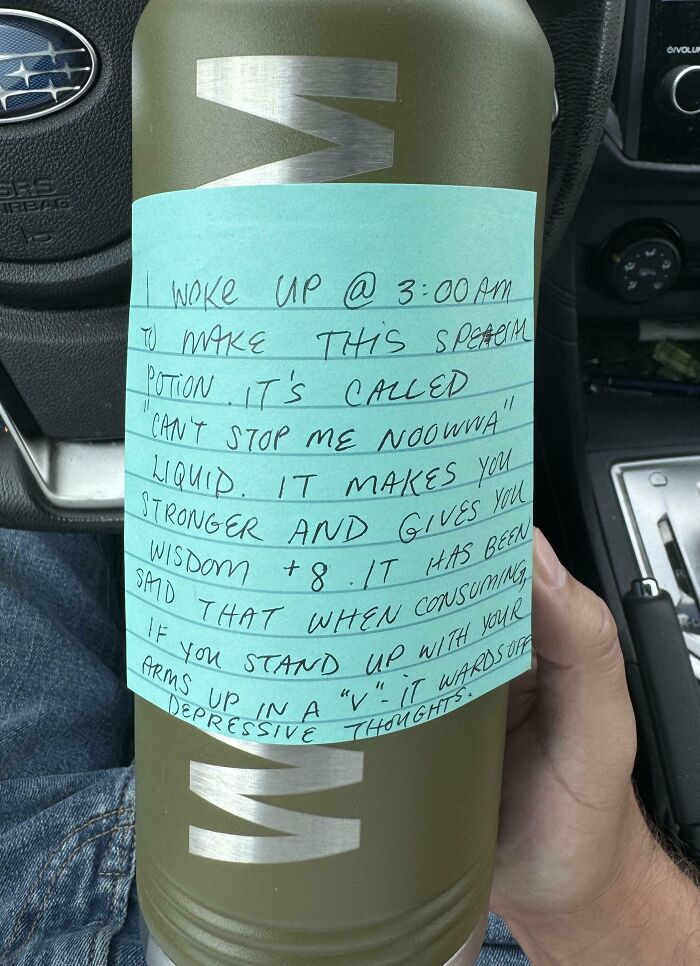 VOLUM
SRS
AIRBAG
I WOKE UP @ 3:00 AM
TO MAKE THIS SPECIAL
POTION. IT'S CALLED
"CAN'T STOP ME NOOWWA"
LIQUID. IT MAKES YOU
STRONGER AND GIVES YOU
WISDOM +8. IT HAS BEEN
SAID THAT WHEN CONSUMING,
IF YOU STAND UP WITH YOUR
ARMS UP IN A "V" - IT WARDS OFF
DEPRESSIVE THOUGHTS.